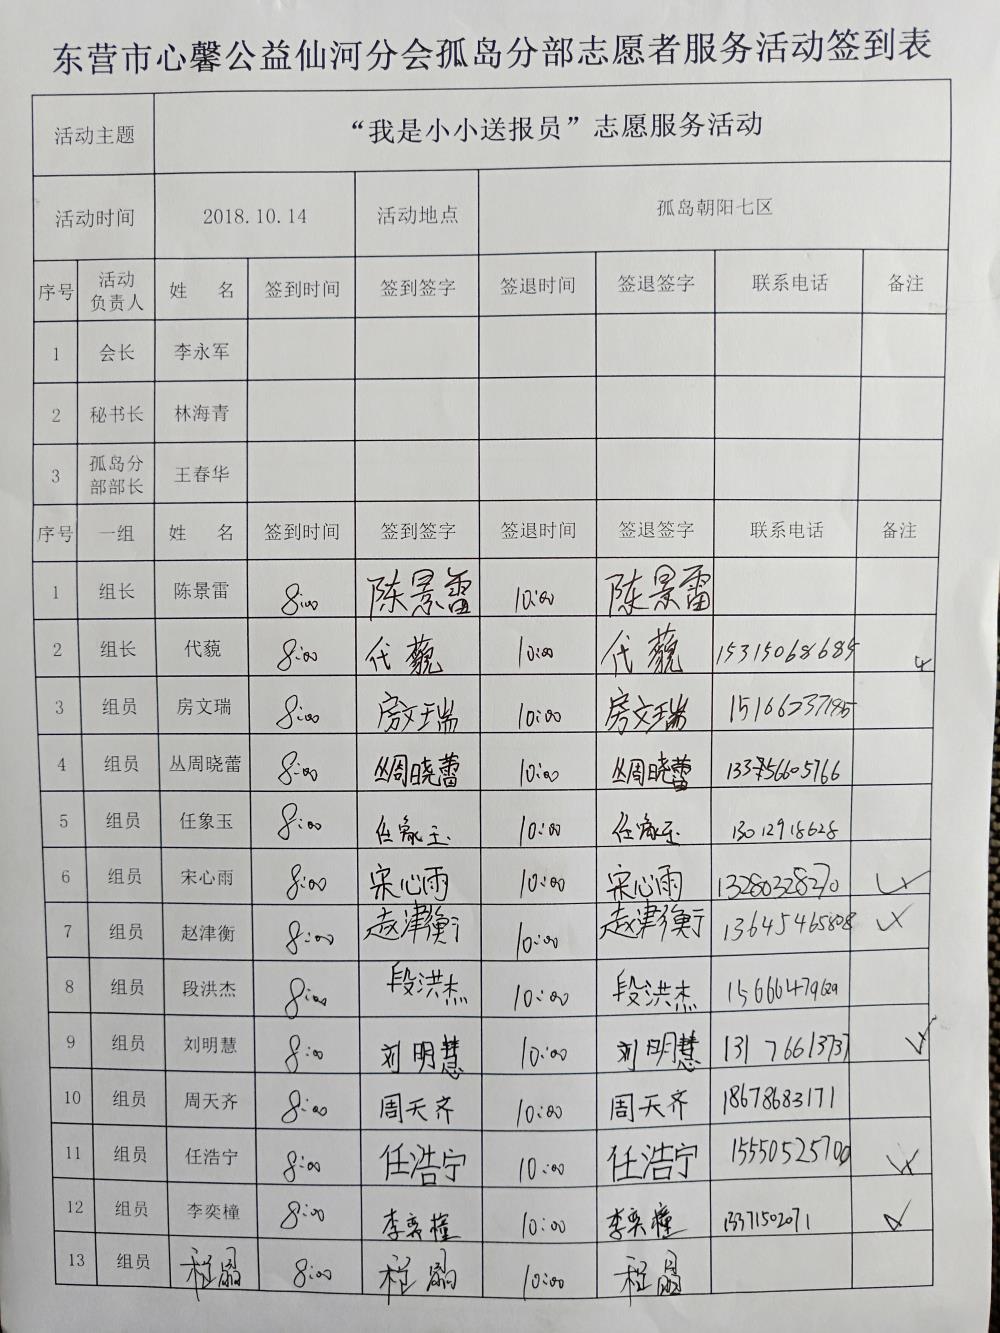 东营市心馨公益仙河分会孤岛分部志愿者服务活动签到表
活动主题 “我是小小送报员”志愿服务活动
活动时间 2018.10.14 活动地点 孤岛朝阳七区
序号 活动负责人 姓 名 签到时间 签到签字 签退时间 签退签字 联系电话 备注
1 会长 李永军
2 秘书长 林海青
3 孤岛分部部长 王春华
序号 一组 姓 名 签到时间 签到签字 签退时间 签退签字 联系电话 备注
1 组长 陈景雷 8:00 陈景雷 10:00 陈景雷
2 组长 代藐 8:00 代藐 10:00 代藐 15315068685
3 组员 房文瑞 8:00 房文瑞 10:00 房文瑞
4 组员 丛周晓蕾 8:00 丛周晓蕾 10:00 丛周晓蕾
5 组员 任象玉 8:00 任象玉 10:00 任象玉 13012918628
6 组员 宋心雨 8:00 宋心雨 10:00 宋心雨 13280328270
7 组员 赵津衡 8:00 赵津衡 10:00 赵津衡 13645465808
8 组员 段洪杰 8:00 段洪杰 10:00 段洪杰
9 组员 刘明慧 8:00 刘明慧 10:00 刘明慧 13176613737
10 组员 周天齐 8:00 周天齐 10:00 周天齐 18678683171
11 组员 任浩宁 8:00 任浩宁 10:00 任浩宁 15550525700
12 组员 李奕橦 8:00 李奕橦 10:00 李奕橦 13371502071
13 组员 程晶 8:00 程晶 10:00 程晶